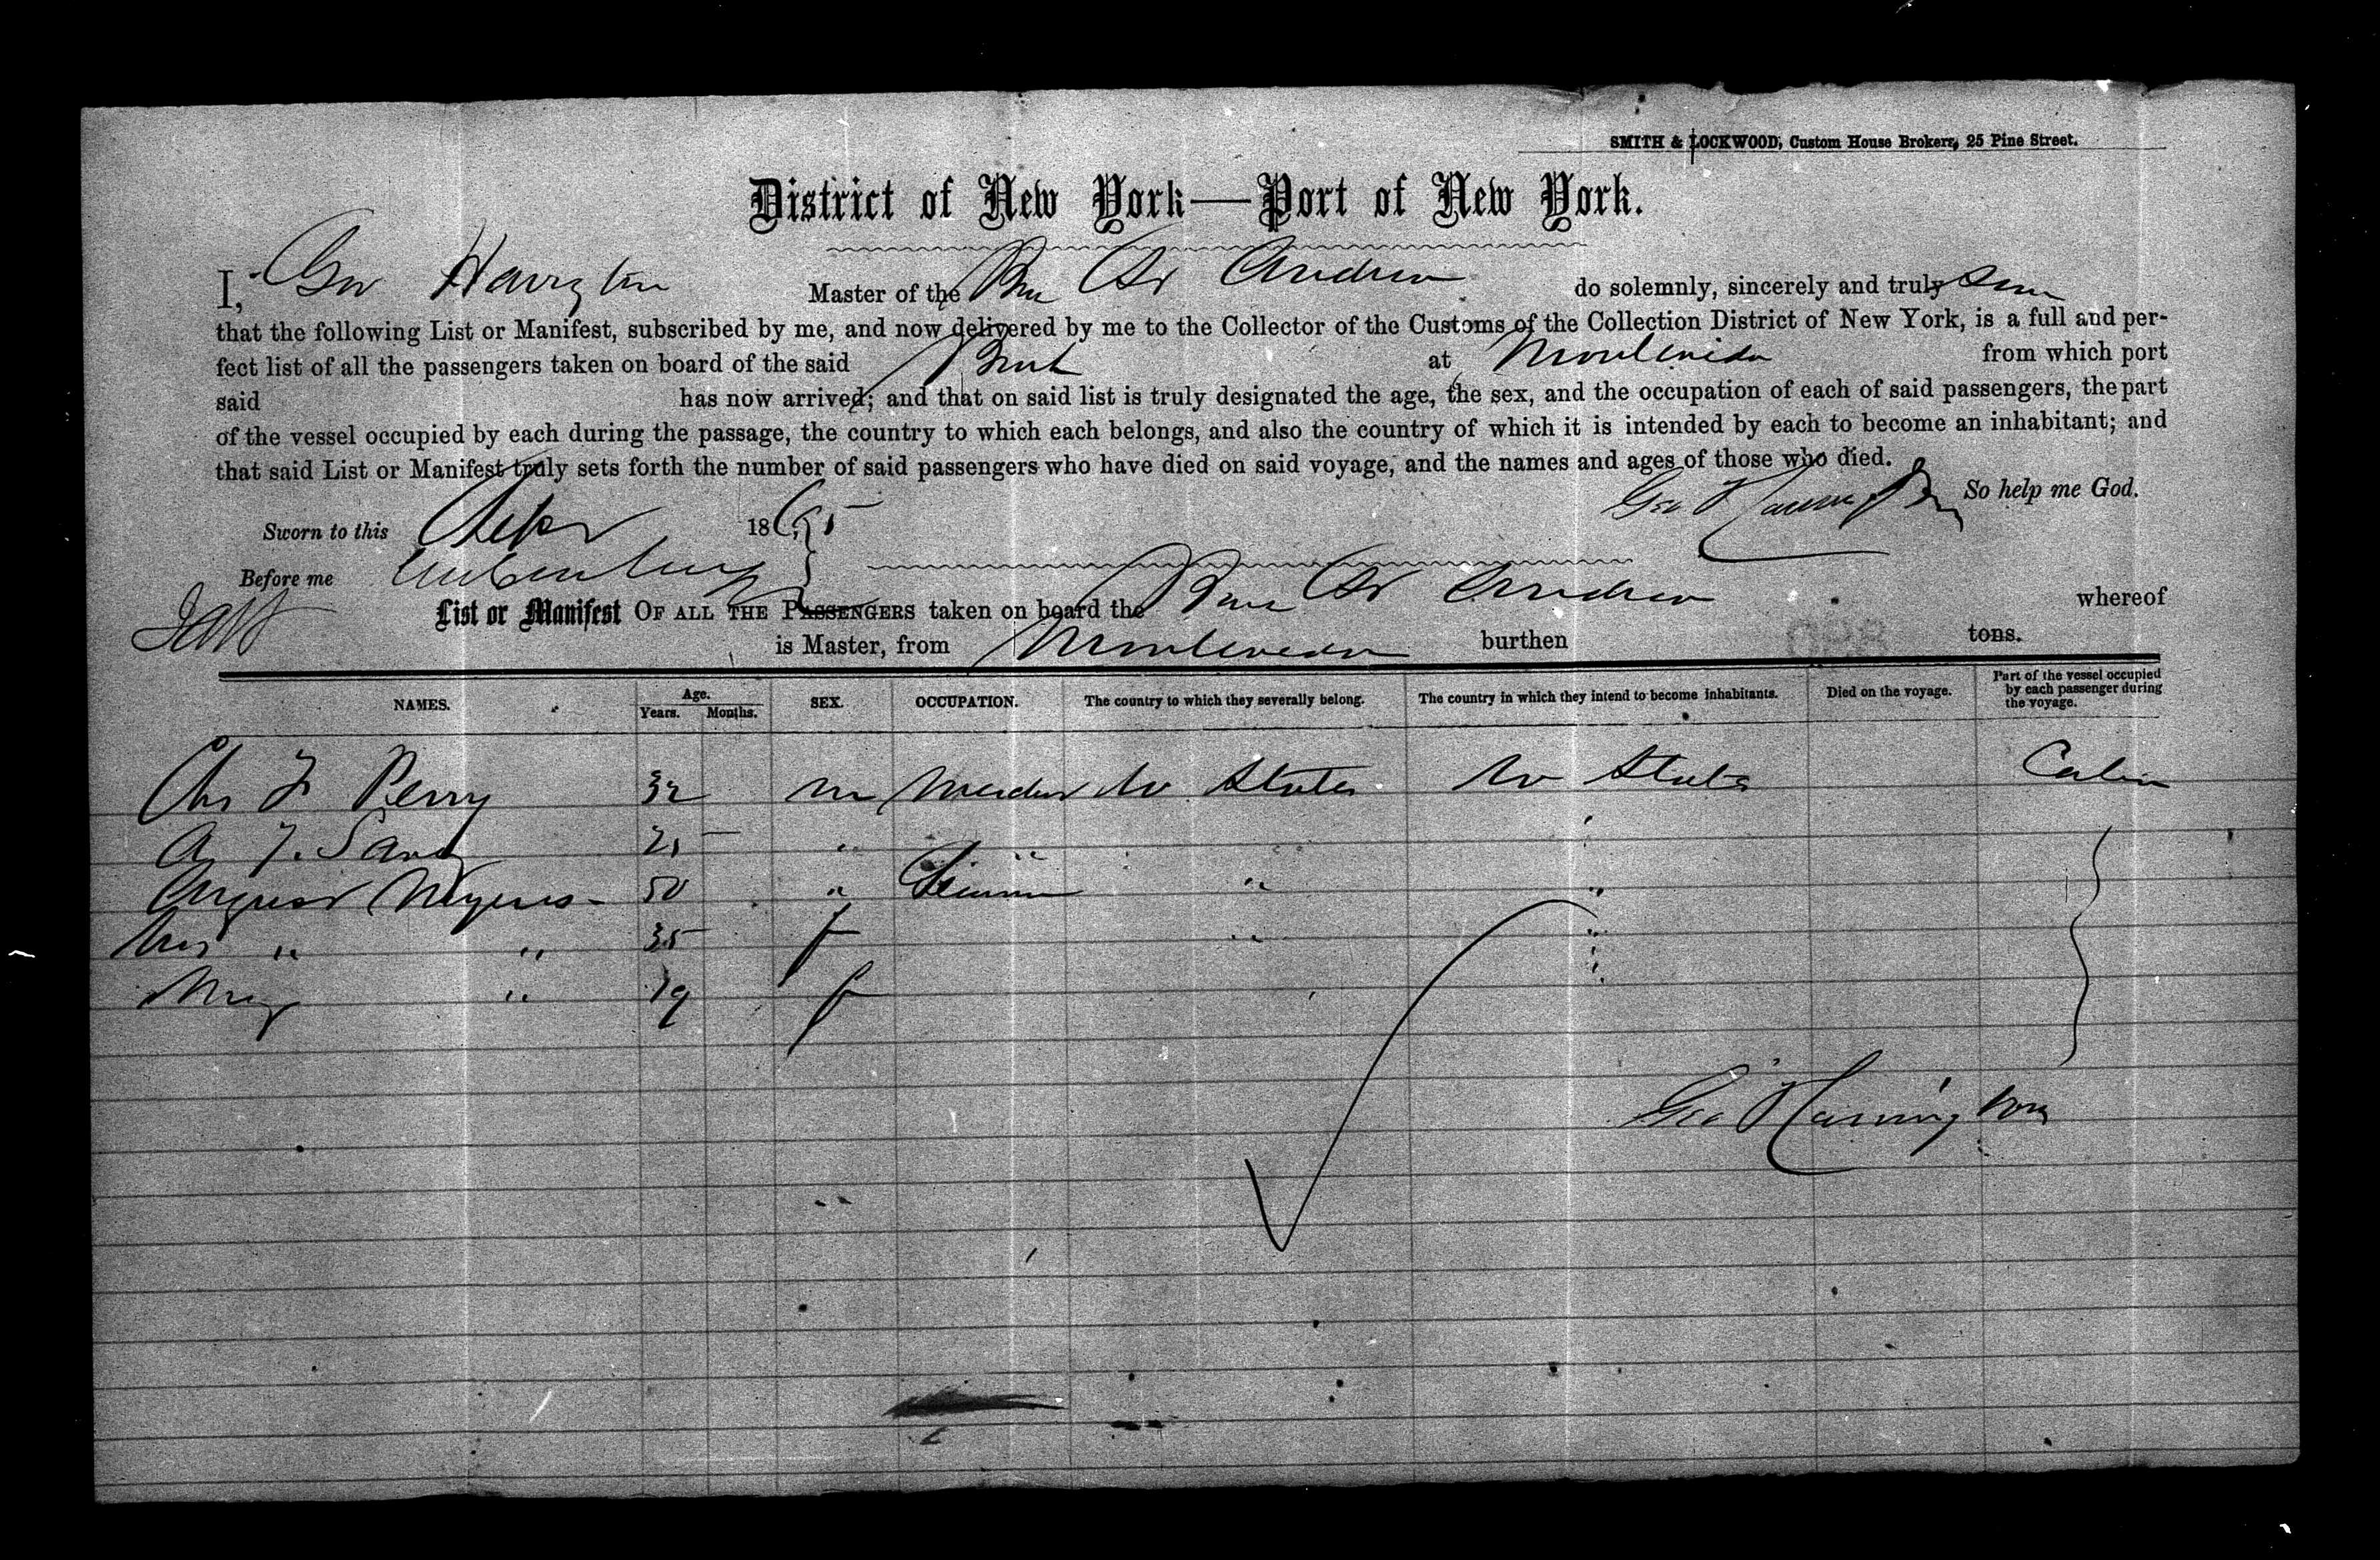 SMITH & LOCKWOOD, Custom House Brokers, 25 Pine Street.
District of New York—Port of New York.
I, Geo Harrington Master of the St Andrew do solemnly, sincerely and truly
that the following List or Manifest, subscribed by me, and now delivered by me to the Collector of the Customs of the Collection District of New York, is a full and per-
fect list of all the passengers taken on board of the said Bark at Montevideo from which port
said has now arrived; and that on said list is truly designated the age, the sex, and the occupation of each of said passengers, the part
of the vessel occupied by each during the passage, the country to which each belongs, and also the country of which it is intended by each to become an inhabitant; and
that said List or Manifest truly sets forth the number of said passengers who have died on said voyage, and the names and ages of those who died.
Geo Harrington So help me God.
Sworn to this 1865
Before me
List or Manifest OF ALL THE PASSENGERS taken on board the St Andrew whereof
is Master, from Montevideo burthen tons.
NAMES. Age. Years. Months. SEX. OCCUPATION. The country to which they severally belong. The country in which they intend to become inhabitants. Died on the voyage. Part of the vessel occupied by each passenger during the voyage.
Perry 32 m U States U States Cabin
25 "
August Meyers 50 " " "
Mrs " " 35 f " "
" 19 f
Geo Harrington